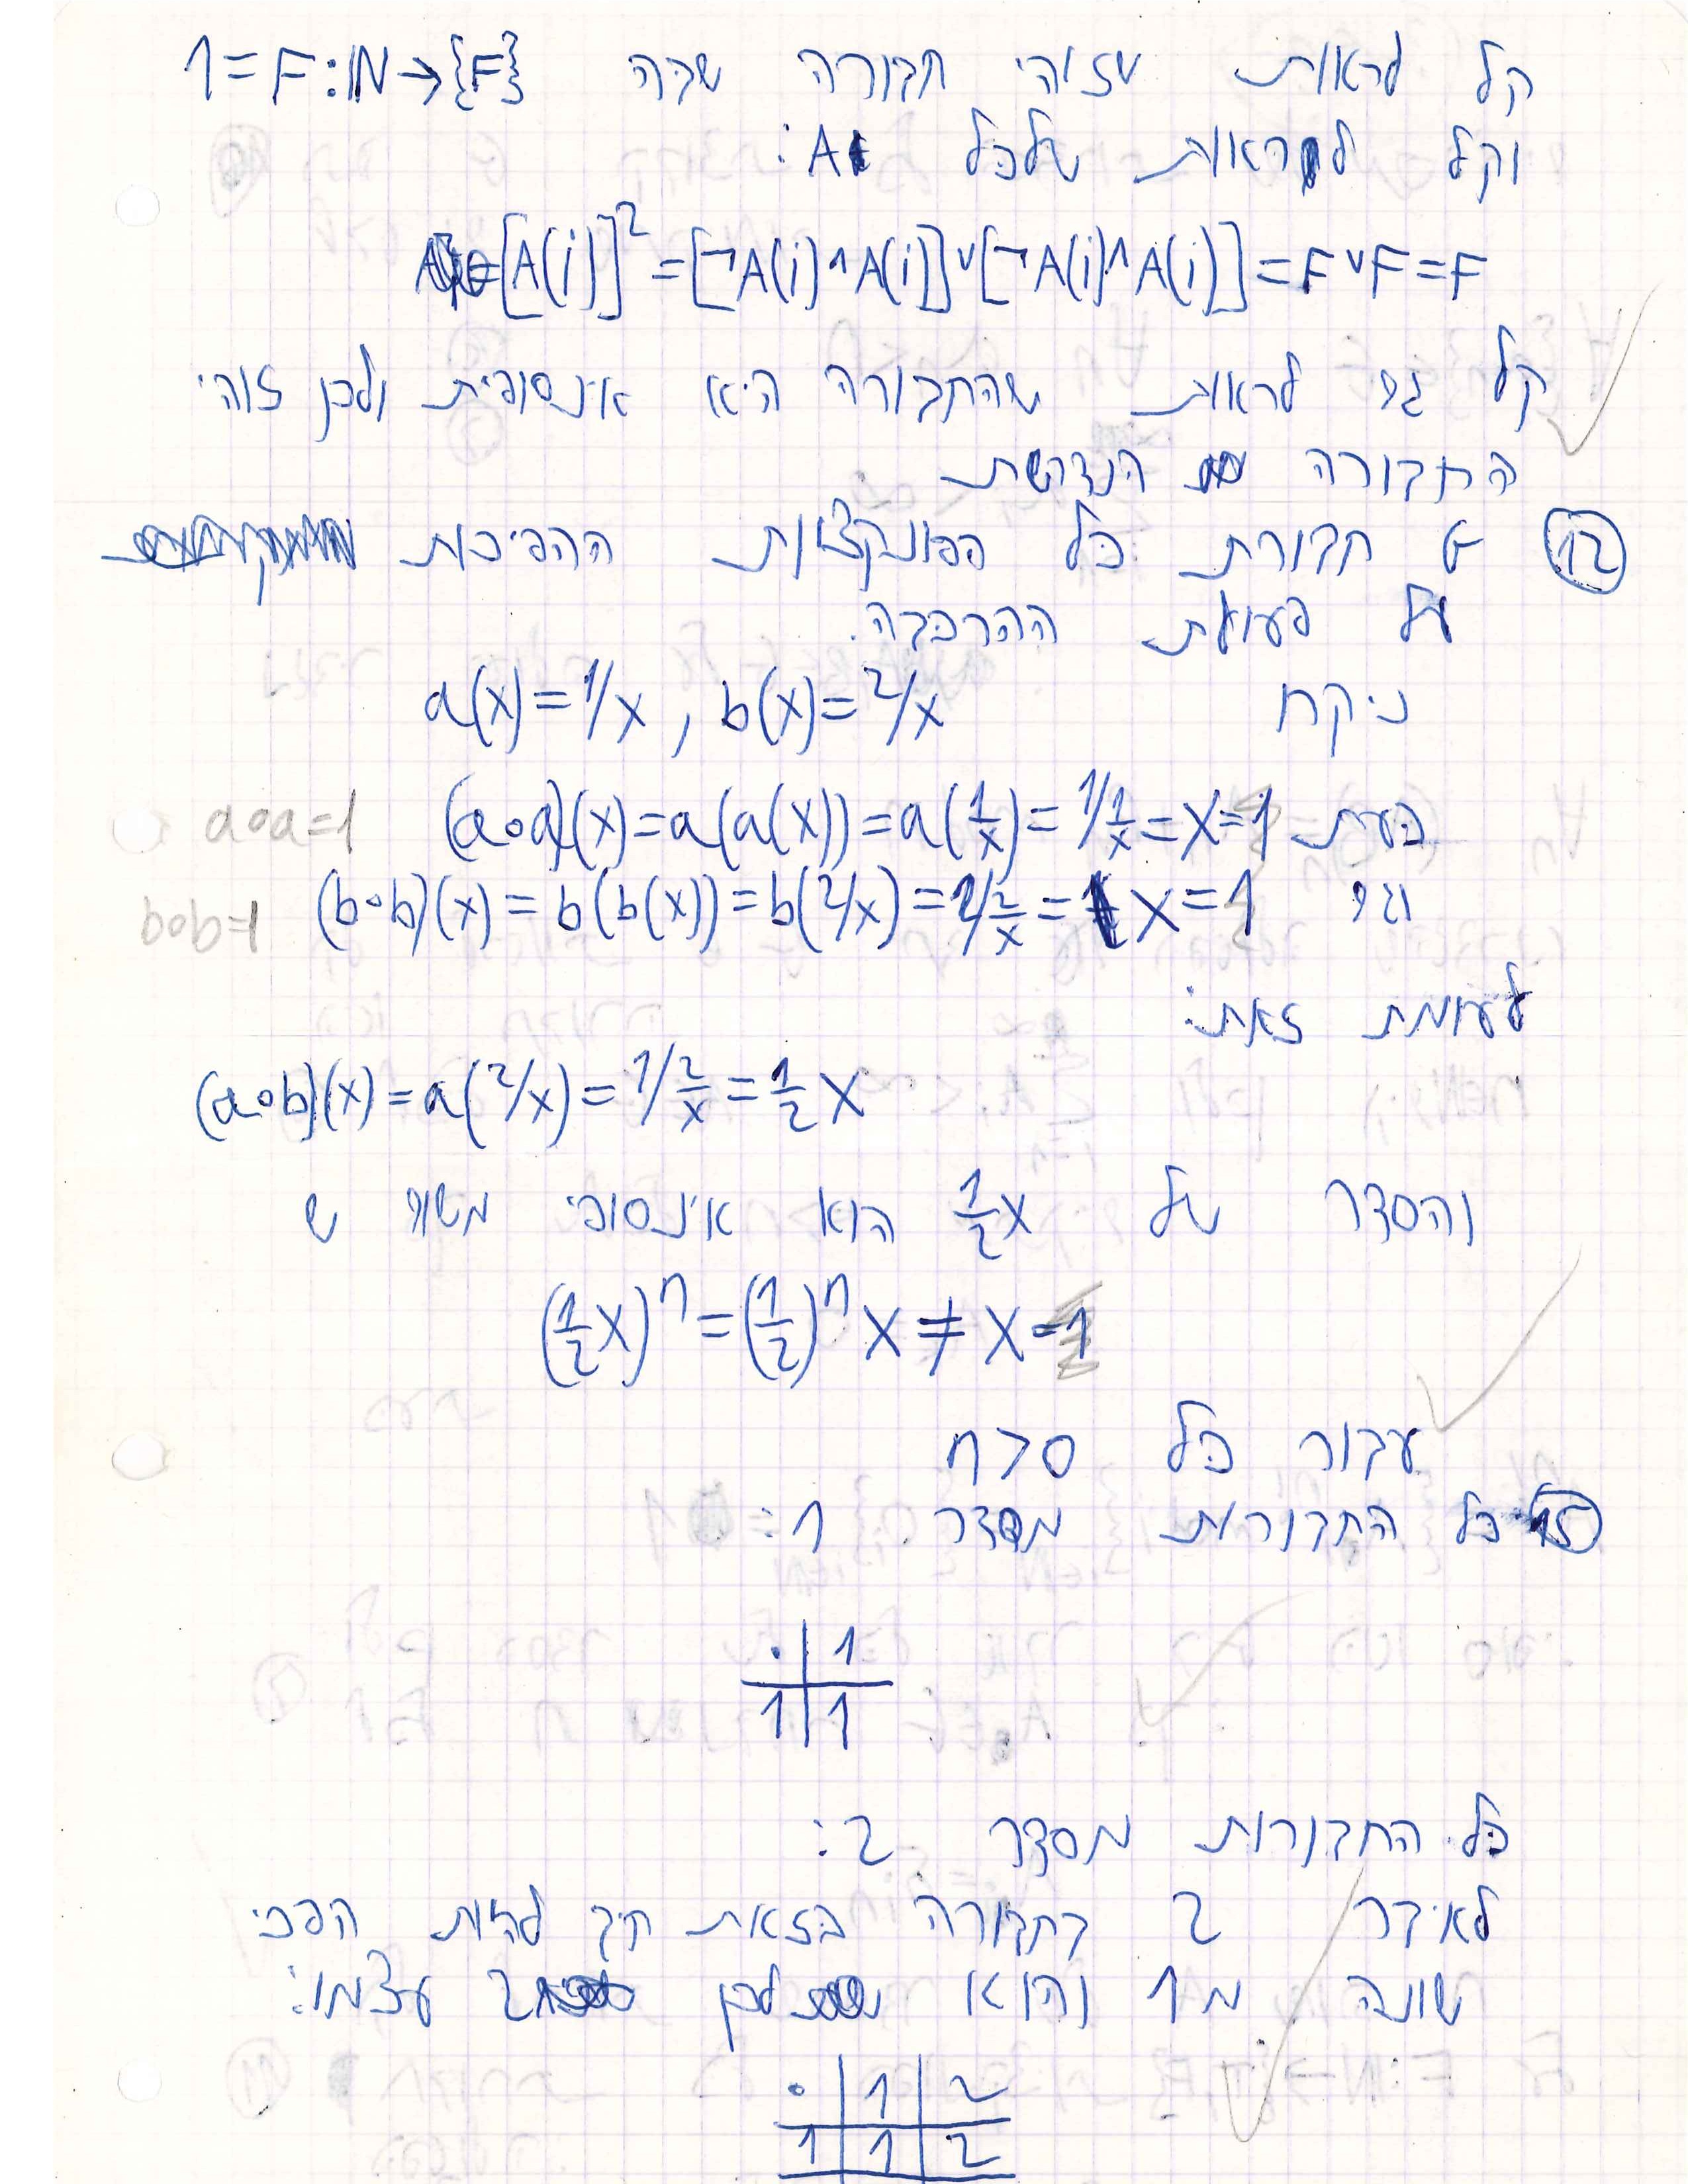 קל לראות שזוהי חבורה שבה 1=F:ℕ→{F}
וקל לראות שלכל A:
[A(i)]²=[¬A(i)∧A(i)]∨[¬A(i)∧A(i)]=F∨F=F
קל גם לראות שהחבורה היא אינסופית ולכן זוהי
החבורה הנדרשת
(12) G חבורת כל הפונקצאות ההפיכות
על פעולת ההרכבה.
ניקח a(x)=1/x, b(x)=2/x
כעת (a∘a)(x)=a(a(x))=a(1/x)=1/(1/x)=x=1 a∘a=1
וגם (b∘b)(x)=b(b(x))=b(2/x)=2/(2/x)=x=1 b∘b=1
לעומת זאת:
(a∘b)(x)=a(2/x)=1/(2/x)=½x
והסדר של ½x הוא אינסופי משום ש
(½x)ⁿ=(½)ⁿx≠x=1
עבור כל n>0
(15) כל החבורות מסדר 1:
· | 1
1 | 1
כל החבורות מסדר 2:
לאיבר 2 בחבורה כזאת חיב להיות הפכי
שונה מ1 והוא לכן 2 עצמו:
· | 1 | 2
1 | 1 | 2